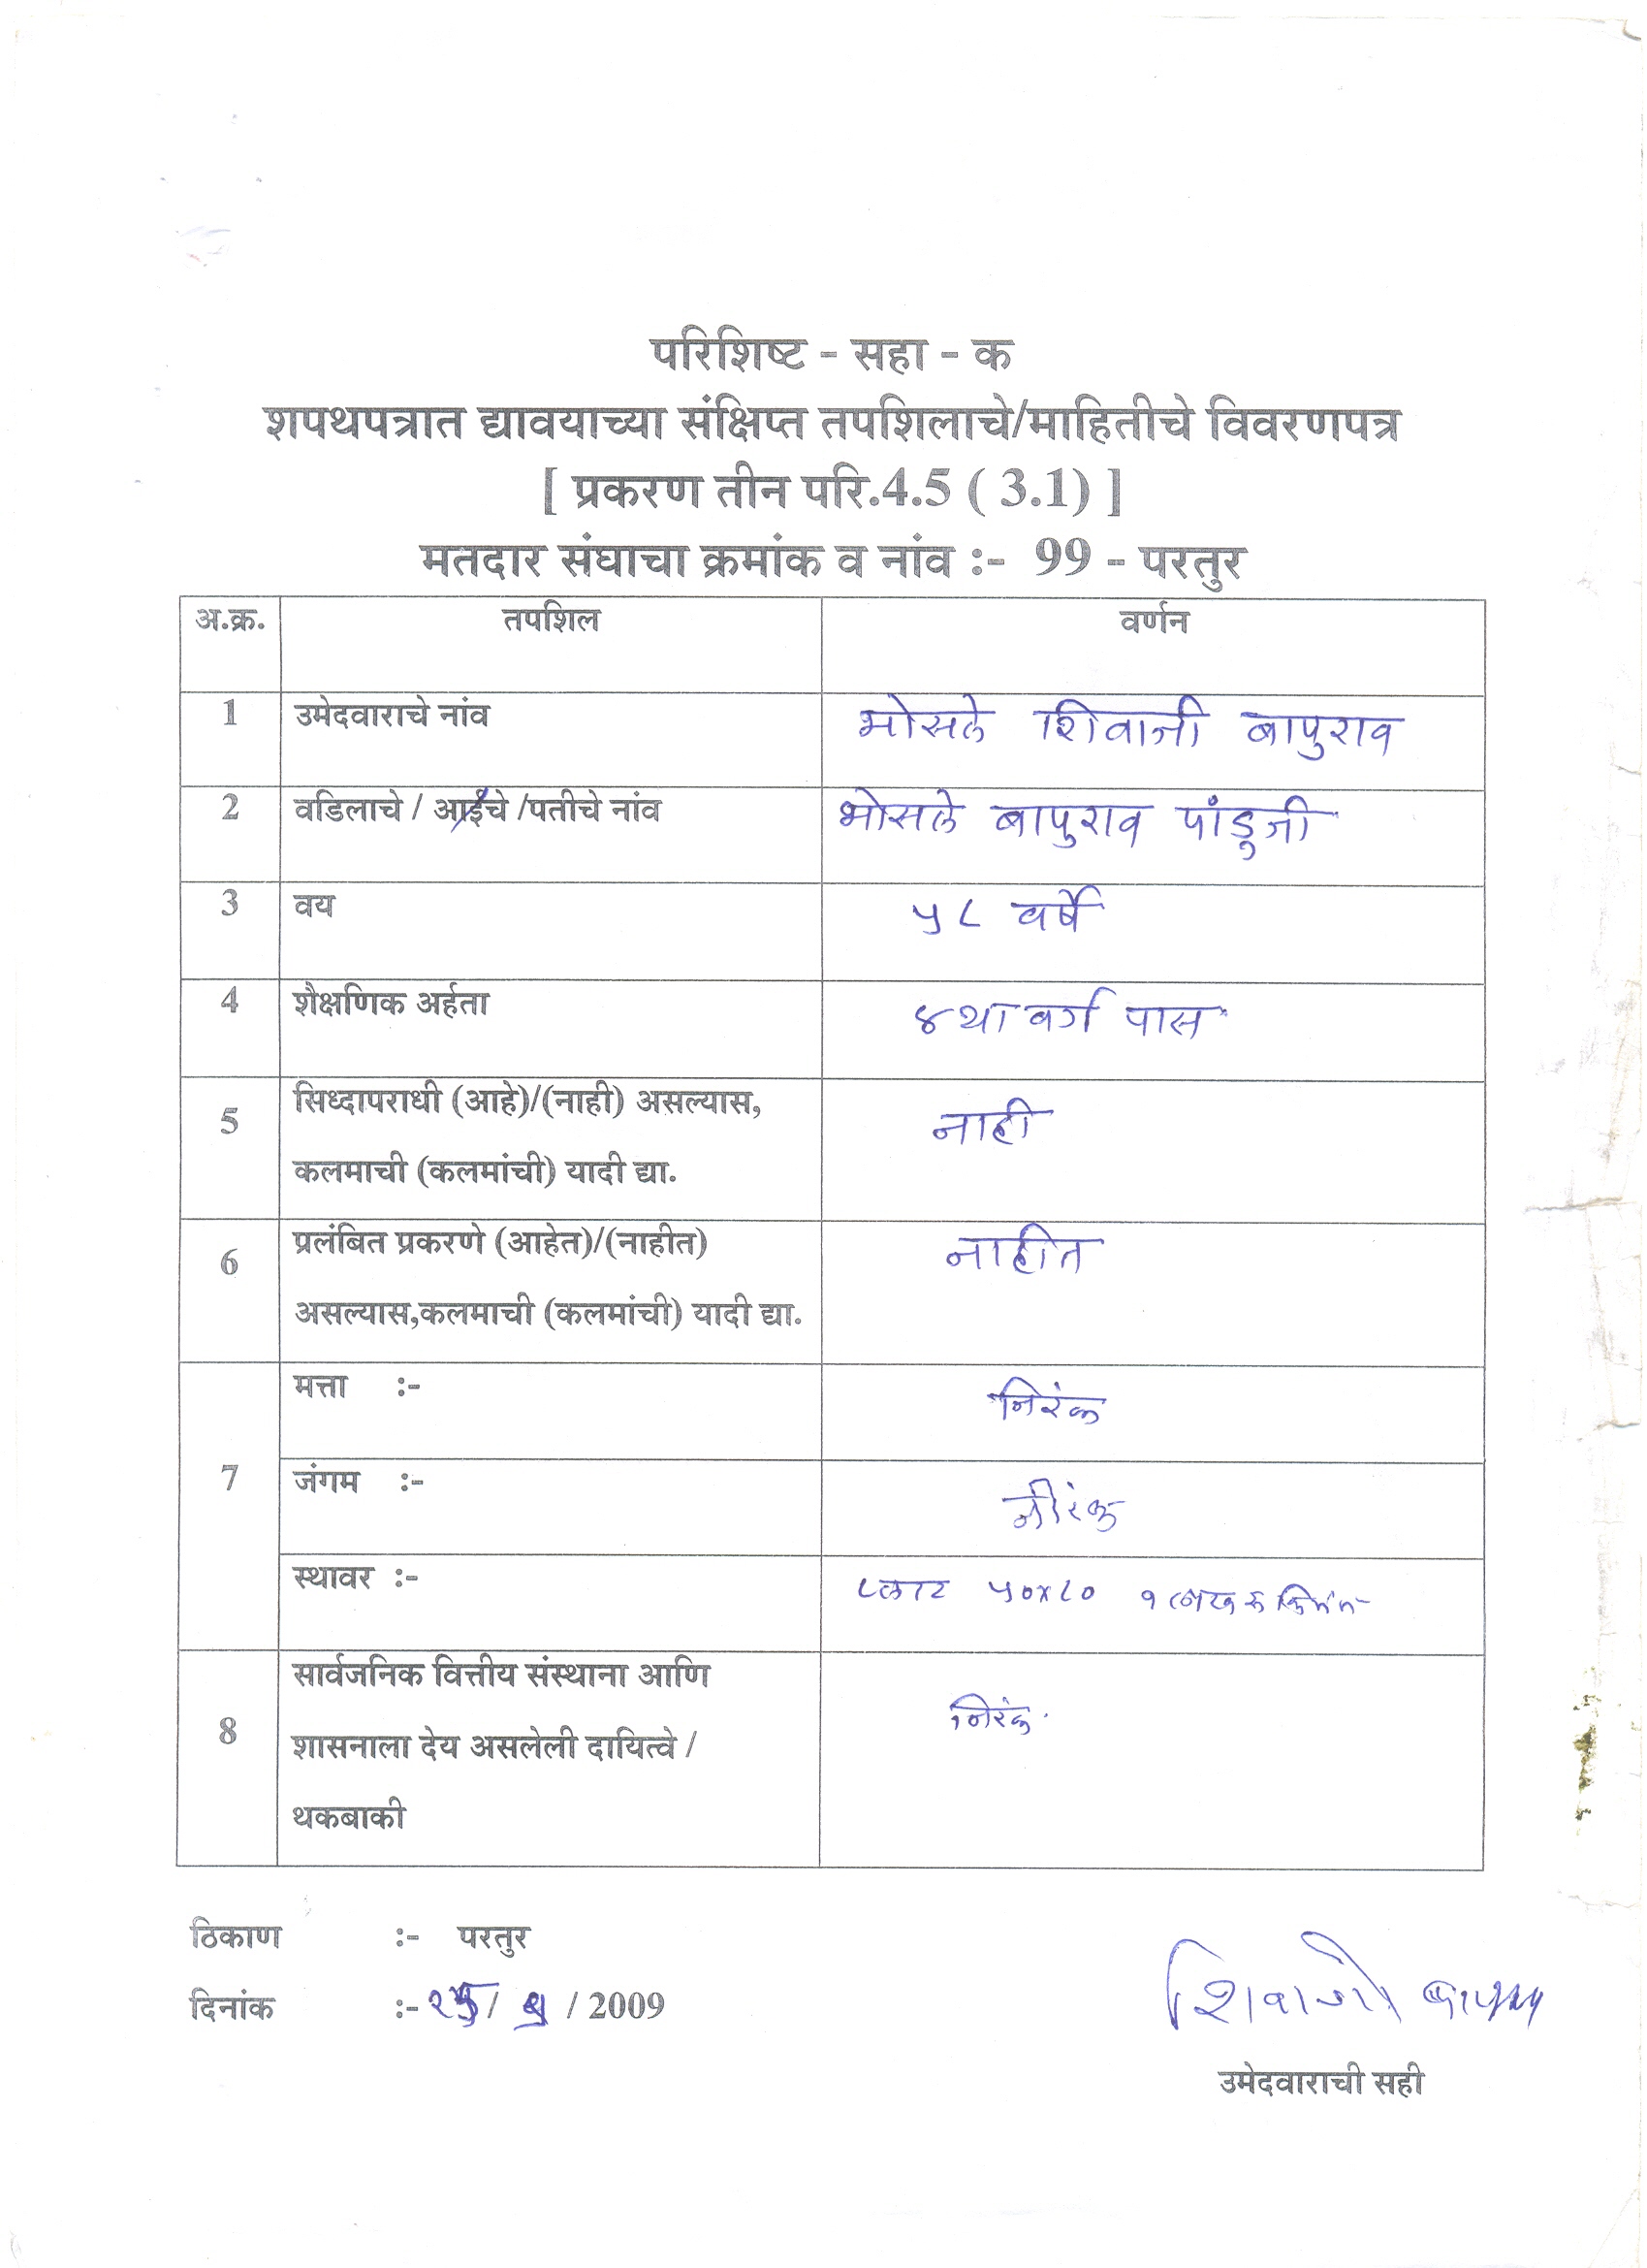 परिशिष्ट - सहा - क
शपथपत्रात द्यावयाच्या संक्षिप्त तपशिलाचे/माहितीचे विवरणपत्र
[ प्रकरण तीन परि.4.5 ( 3.1) ]
मतदार संघाचा क्रमांक व नांव :- 99 - परतुर
अ.क्र. तपशिल वर्णन
1 उमेदवाराचे नांव भोसले शिवाजी बापुराव
2 वडिलाचे / आईचे /पतीचे नांव भोसले बापुराव पांडुजी
3 वय ५८ वर्षे
4 शैक्षणिक अर्हता ४था वर्ग पास
5 सिध्दापराधी (आहे)/(नाही) असल्यास, नाही
कलमाची (कलमांची) यादी द्या.
6 प्रलंबित प्रकरणे (आहेत)/(नाहीत) नाहीत
असल्यास,कलमाची (कलमांची) यादी द्या.
7 मत्ता :- निरंक
जंगम :- नीरंक
स्थावर :- प्लाट ५०x८० १ लाख रु किंमत
8 सार्वजनिक वित्तीय संस्थाना आणि निरंक
शासनाला देय असलेली दायित्वे /
थकबाकी
ठिकाण :- परतुर
दिनांक :- २५ / ९ / 2009
शिवाजी बापुराव
उमेदवाराची सही